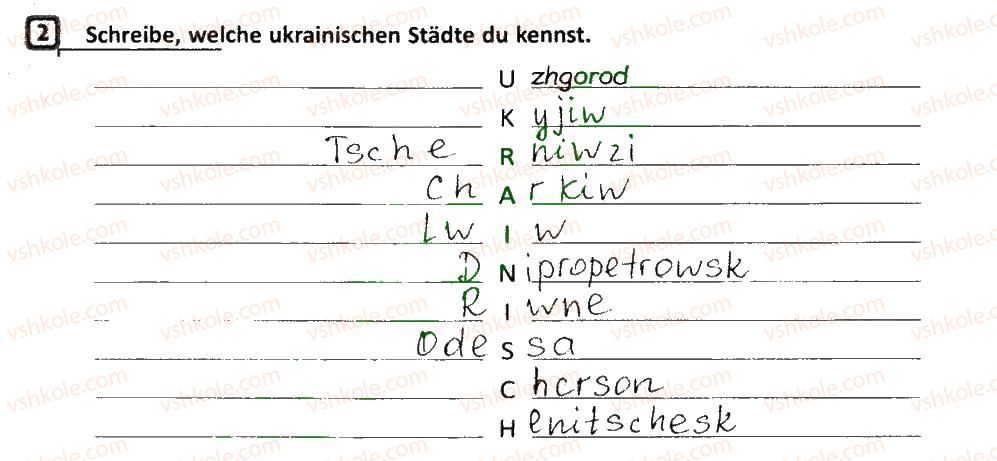 2 Schreibe, welche ukrainischen Städte du kennst.
U zhgorod
K yjiw
Tsche R niwzi
Ch A r kiw
Lw I w
D N ipropetrowsk
R I wne
Ode S sa
C herson
H enitschesk